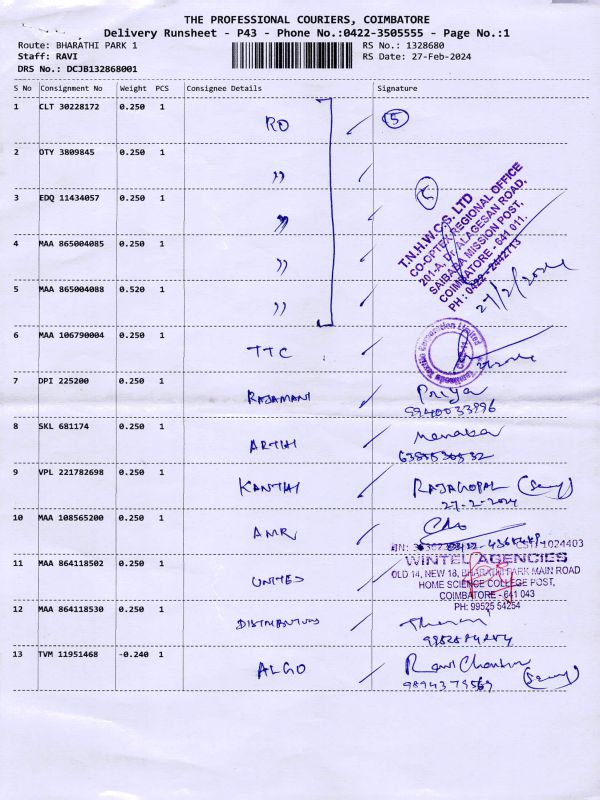 THE PROFESSIONAL COURIERS, COIMBATORE
Delivery Runsheet - P43 - Phone No.:0422-3505555 - Page No.:1
Route: BHARATHI PARK 1 RS No.: 1328680
Staff: RAVI RS Date: 27-Feb-2024
DRS No.: DCJB132868001
S No Consignment No Weight PCS Consignee Details Signature
1 CLT 30228172 0.250 1 RO 5
2 OTY 3809845 0.250 1 "
3 EDQ 11434057 0.250 1 "
4 MAA 865004085 0.250 1 "
5 MAA 865004088 0.520 1 "
T.N.H.W.C.S. LTD
CO-OPTEX REGIONAL OFFICE
201-A, Dr. ALAGESAN ROAD,
SAIBABA MISSION POST,
COIMBATORE - 641 011.
PH : 0422 - 2442713
27/2/2024
6 MAA 106790004 0.250 1 TTC
7 DPI 225200 0.250 1 RAJAMANI Priya
9940033996
8 SKL 681174 0.250 1 ARTHI
9 VPL 221782698 0.250 1 KANTHI RAJAGOPAL
27-2-2024
10 MAA 108565200 0.250 1 AMR
CST: 1024403
11 MAA 864118502 0.250 1 UNITED
WINTEL AGENCIES
OLD 14, NEW 18, BHARATHI PARK MAIN ROAD
HOME SCIENCE COLLEGE POST,
COIMBATORE - 641 043
PH: 99525 54254
12 MAA 864118530 0.250 1
13 TVM 11951468 -0.240 1 ALGO
9894379569